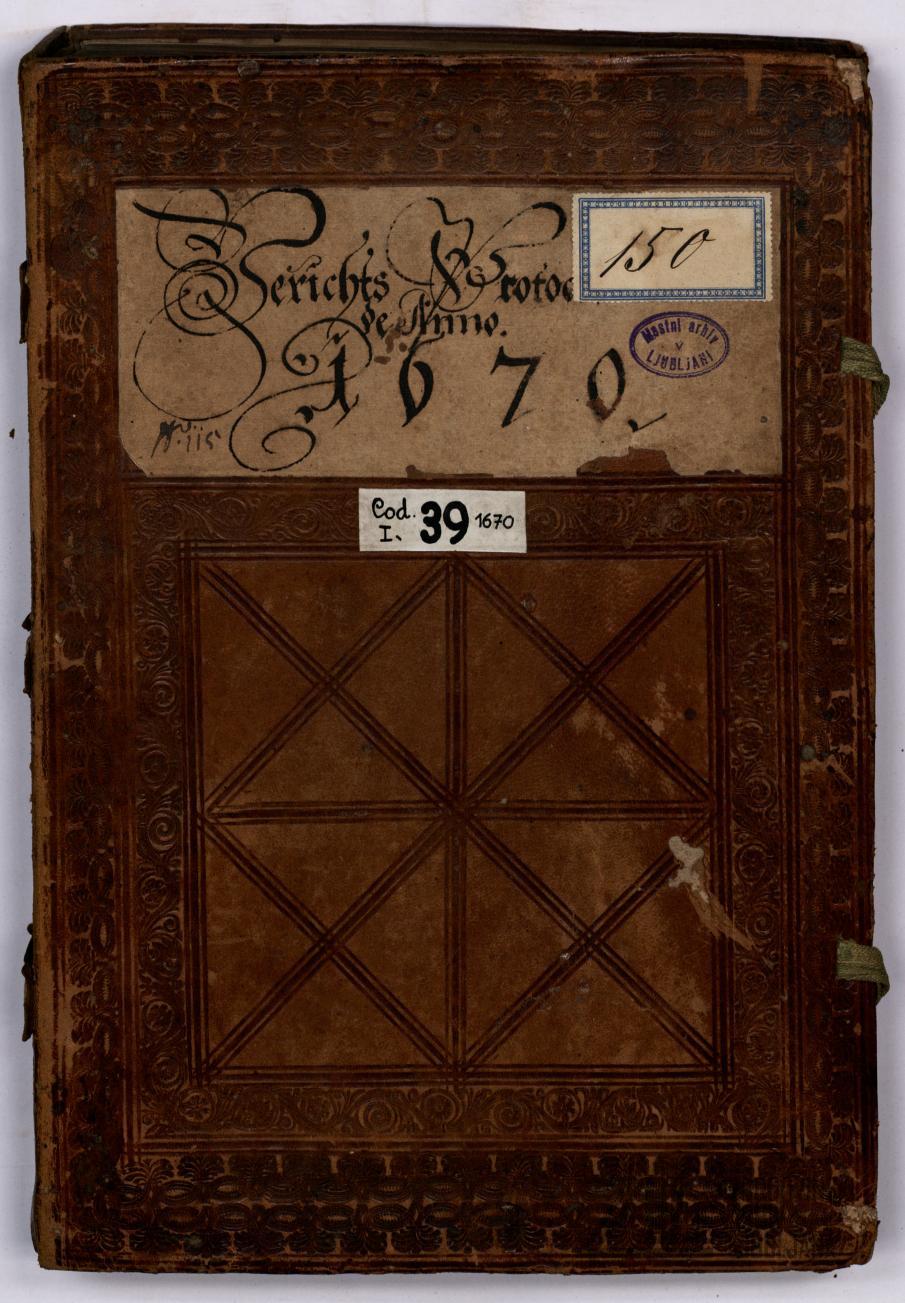 Gerichts Protoc
150
de Anno.
1670
Mestni arhiv
v
LJUBLJANI
Nº. 115
Cod. 39 1670
I.